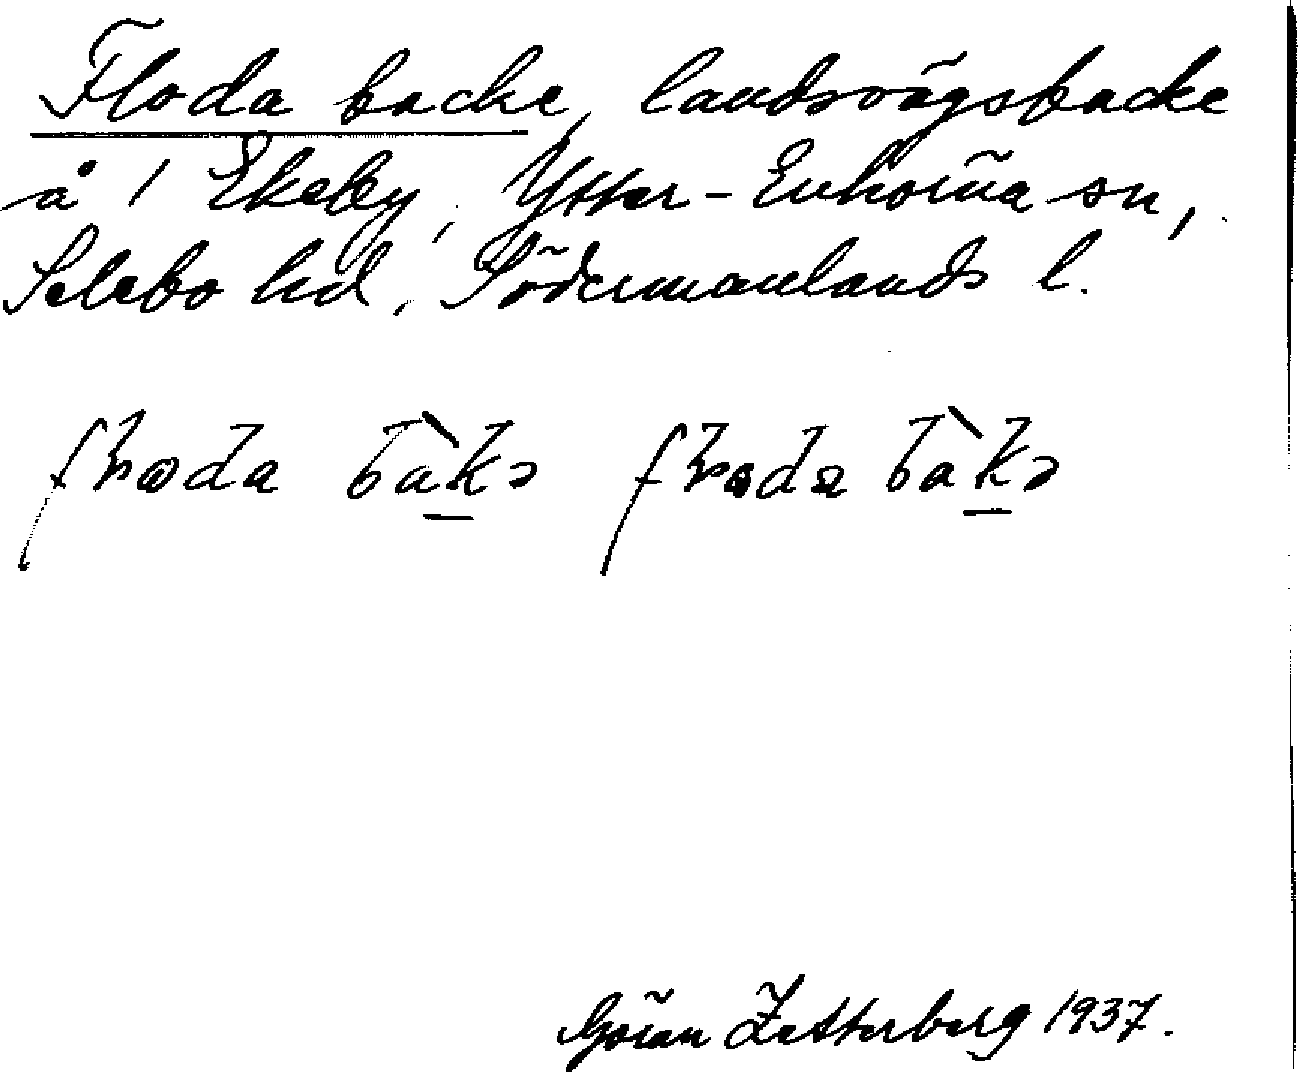 Floda backe, landsvägsbacke
å 1 Ekeby, Ytter-Enhörna sn,
Selebo hd, Södermanlands l.
Göran Zetterberg 1937.